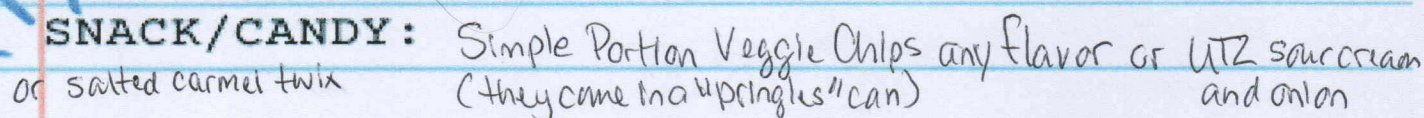 SNACK/CANDY: Simple Portion Veggie Chips any flavor or UTZ sourcream
or salted carmel twix (they come in a "pringles" can) and onion